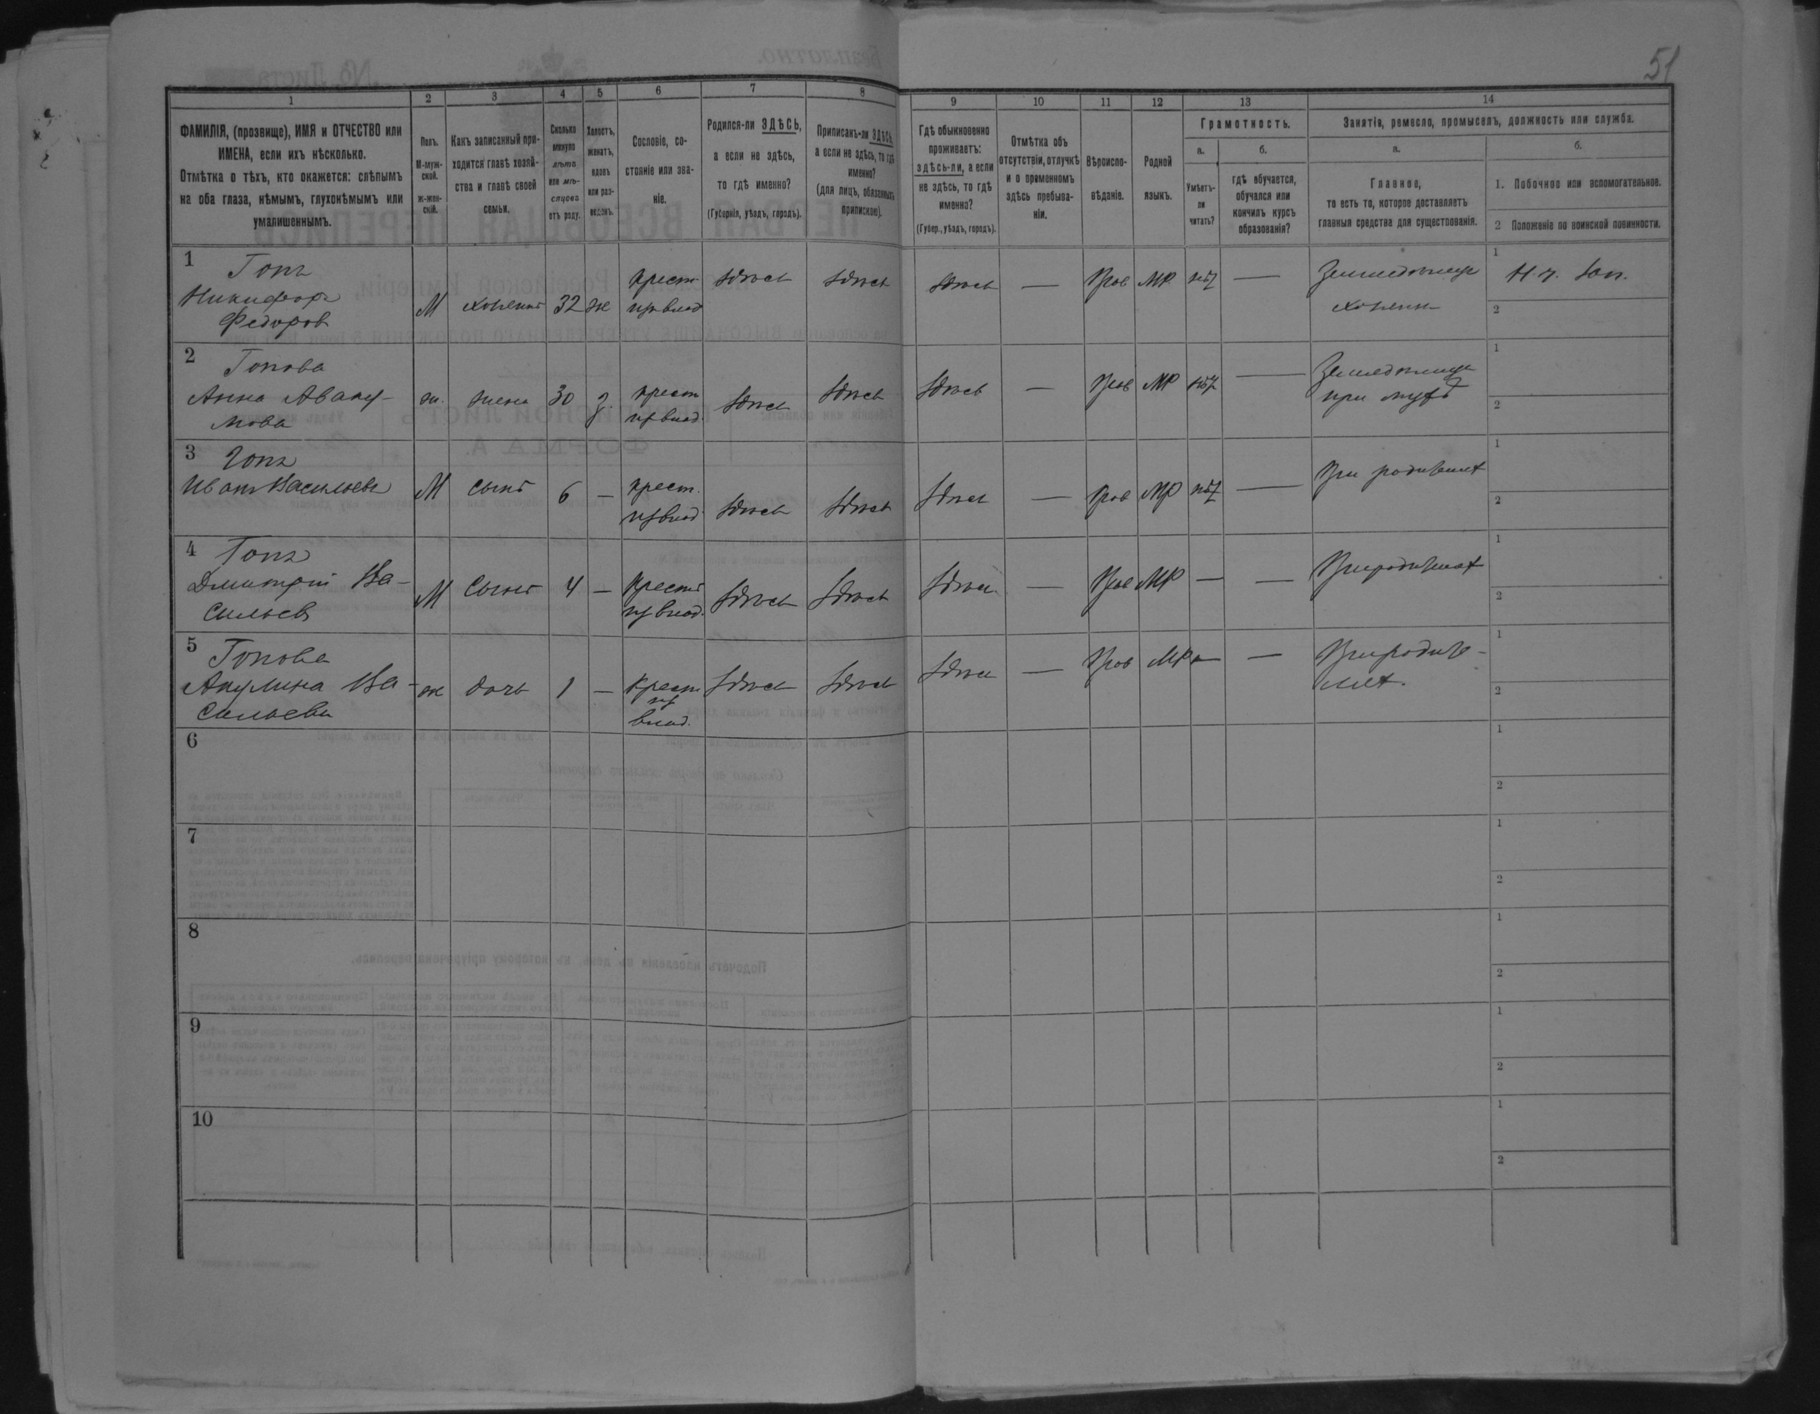 51
1
2
3
4
5
6
7
8
9
10
11
12
13
14
ФАМИЛІЯ, (прозвище), ИМЯ и ОТЧЕСТВО или
ИМЕНА, если ихъ нѣсколько.
Отмѣтка о тѣхъ, кто окажется: слѣпымъ
на оба глаза, нѣмымъ, глухонѣмымъ или
умалишеннымъ.
Полъ.
М-муж-
ской.
ж-жен-
скій.
Какъ записанный при-
ходится главѣ хозяй-
ства и главѣ своей
семьи.
Сколько
минуло
лѣтъ
или мѣ-
сяцевъ
отъ роду.
Холостъ,
женатъ,
вдовъ
или раз-
веденъ.
Сословіе, со-
стояніе или зва-
ніе.
Родился-ли ЗДѢСЬ,
а если не здѣсь,
то гдѣ именно?
(Губернія, уѣздъ, городъ).
Приписанъ-ли ЗДѢСЬ,
а если не здѣсь, то гдѣ
именно?
(для лицъ, обязанныхъ
припискою).
Гдѣ обыкновенно
проживаетъ:
здѣсь-ли, а если
не здѣсь, то гдѣ
именно?
(Губер., уѣздъ, городъ).
Отмѣтка объ
отсутствіи, отлучкѣ
и о временномъ
здѣсь пребыва-
ніи.
Вѣроиспо-
вѣданіе.
Родной
языкъ.
Грамотность.
а.
Умѣетъ-
ли
читать?
б.
гдѣ обучается,
обучался или
кончилъ курсъ
образованія?
Занятія, ремесло, промыселъ, должность или служба.
а.
Главное,
то есть то, которое доставляетъ
главныя средства для существованія.
б.
1. Побочное или вспомогательное.
2 Положеніе по воинской повинности.
1 Гопъ
Никифоръ
Федоровъ
М хозяинъ 32 ж
крест
здѣсь здѣсь здѣсь — Прав МР нѣт —
Земледѣлецъ
хозяинъ
1
2
2 Гопова
Анна Аваку-
мова
ж. жена 30 з.
крест
здѣсь здѣсь здѣсь — Прав МР нѣт —
Земледѣлецъ
при мужѣ
1
2
3 Гопъ
Иванъ Васильевъ
М сынъ 6 —
крест.
здѣсь здѣсь здѣсь — Прав МР нѣт —
При родителях
1
2
4 Гопъ
Дмитрій Ва-
сильевъ
М сынъ 4 —
крест
здѣсь здѣсь здѣсь — Прав МР — —
При родителях
1
2
5 Гопова
Акулина Ва-
сильева
ж дочь 1 —
крест
здѣсь здѣсь здѣсь — Прав МР — —
При родите-
лях.
1
2
6
1
2
7
1
2
8
1
2
9
1
2
10
1
2